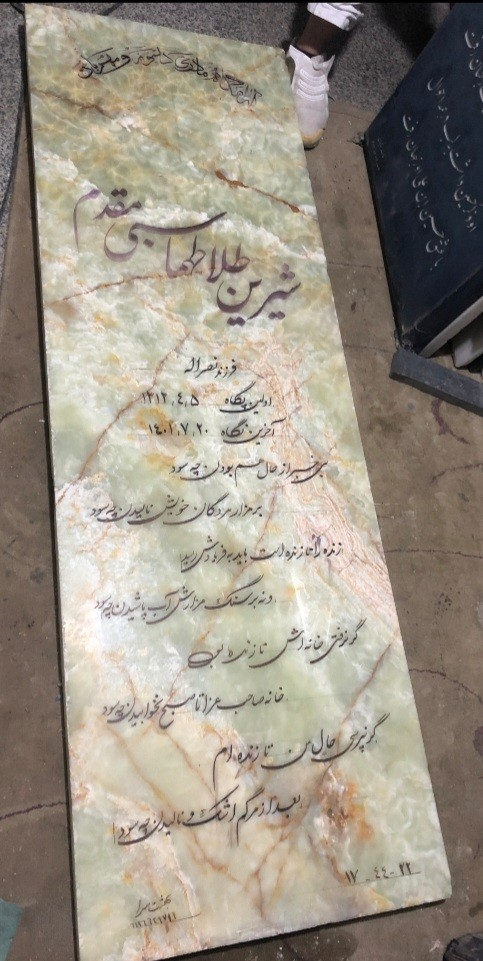 آرامگاه مادری دلسوز و مهربان
شیرین طلا طهماسبی مقدم
فرزند نصراله
اولین پگاه ۱۳۱۲,۴,۵
آخرین نگاه ۱۴۰۲,۷,۲۰
بی خبر از حال هم بودن چه سود
بر مزار مردگان خویش نالیدن چه سود
زنده را تا زنده است باید به فریادش رسید
ورنه بر سنگ مزارش آب پاشیدن چه سود
گر نرفتی خانه اش تا زنده بود
خانه صاحب عزا تا صبح خوابیدن چه سود
گر نپرسی حال من تا زنده ام
بعد از مرگم اشک و نالیدن چه سود
۱۷ - ۴۴ - ۲۲